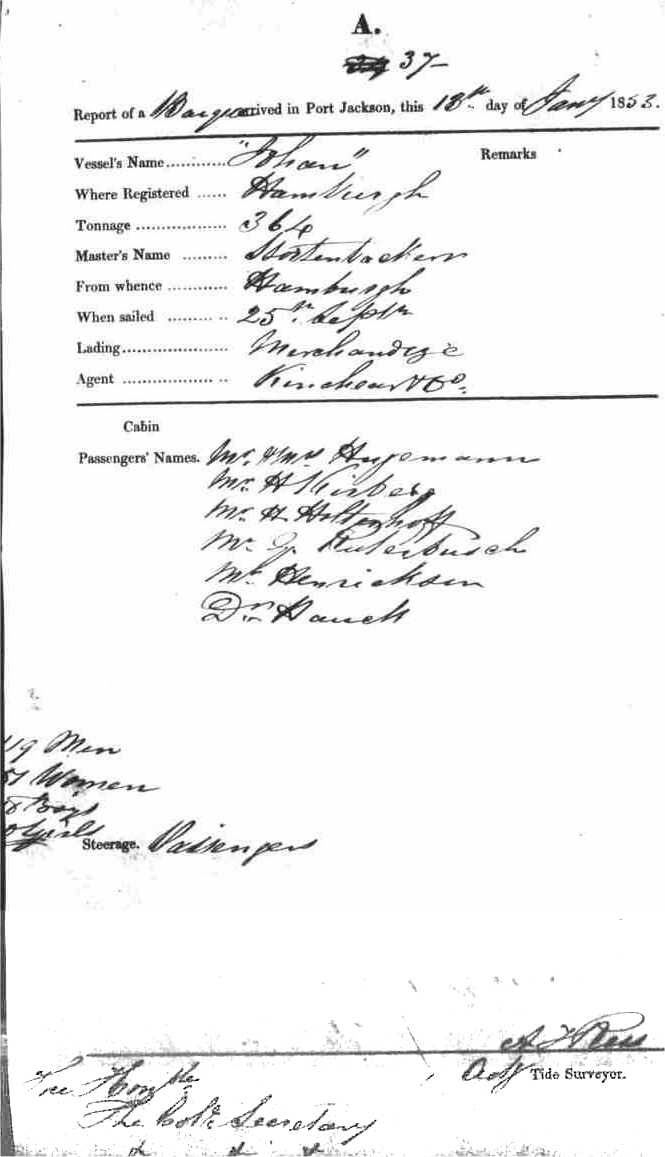 A.
37
Report of a Barque arrived in Port Jackson, this 18th day of Jany 1853.
Vessel's Name "Johan" Remarks
Where Registered Hamburgh
Tonnage 364
Master's Name
From whence Hamburgh
When sailed 25th Septr
Lading Merchandize
Agent & Co.
Cabin
Passengers' Names. Mr. & Mrs Hugemann
Mr. H Kirberg
Mr. H. Holtenhoff
Mr. Ruterbusch
Mr. Henricksen
Dr. Hauck
Men
Women
Boys
Girls
Steerage. Passengers
Tide Surveyor.
The Honble
The Colr. Secretary